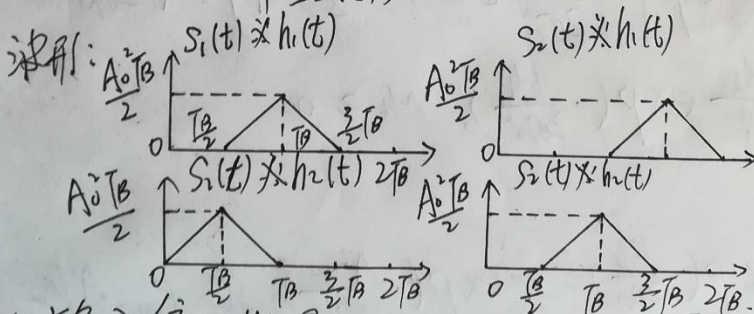 波形: S₁(t)※h₁(t)
A₀²TB/2
TB/2 TB 3/2TB 2TB
0
S₂(t)※h₁(t)
A₀²TB/2
0
S₁(t)※h₂(t)
A₀²TB/2
0 TB/2 TB 3/2TB 2TB
S₂(t)※h₂(t)
A₀²TB/2
0 TB/2 TB 3/2TB 2TB.